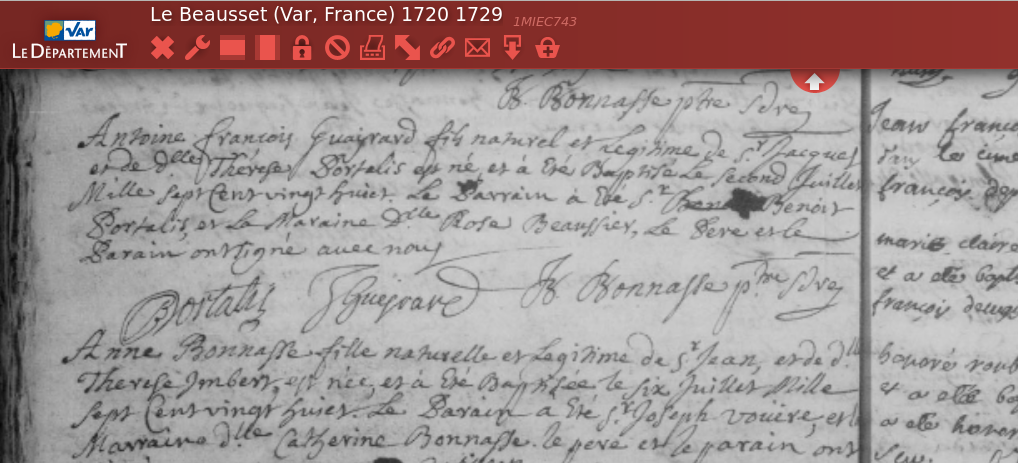 Le Beausset (Var, France) 1720 1729
1MIEC743
VAR
LE DÉPARTEMENT
Bonnasse ptre
Antoine francois Guairard fils naturel et Legitime de Sr Jacques
et de dlle Therese Portalis est né, et à Eté Baptisé Le Second Juillet
Mille Sept Cent vingt huict. Le Parrain à Eté Sr Benoit
Portalis, et La Maraine dlle Rose Beaussier, Le Pere et le
Parain ont signé avec nous
Portalis
Bonnasse ptre
Anne Bonnasse fille naturelle et Legitime de Sr Jean, et de dlle
Therese Imbert, est née, et à Eté Baptisée le six Juillet Mille
Sept Cent vingt huict. Le Parain a Eté Sr Joseph et la
Marraine dlle Catherine Bonnasse. le pere et le parain ont
Jean
les
françois
marie claire
et a eté
françois
honoré
et a eté
a eté